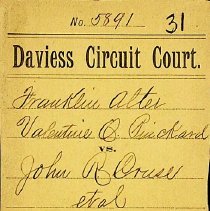 No. 5891 31
Daviess Circuit Court.
Franklin Alter
Valentine Q. Prickard
vs.
John R
et al